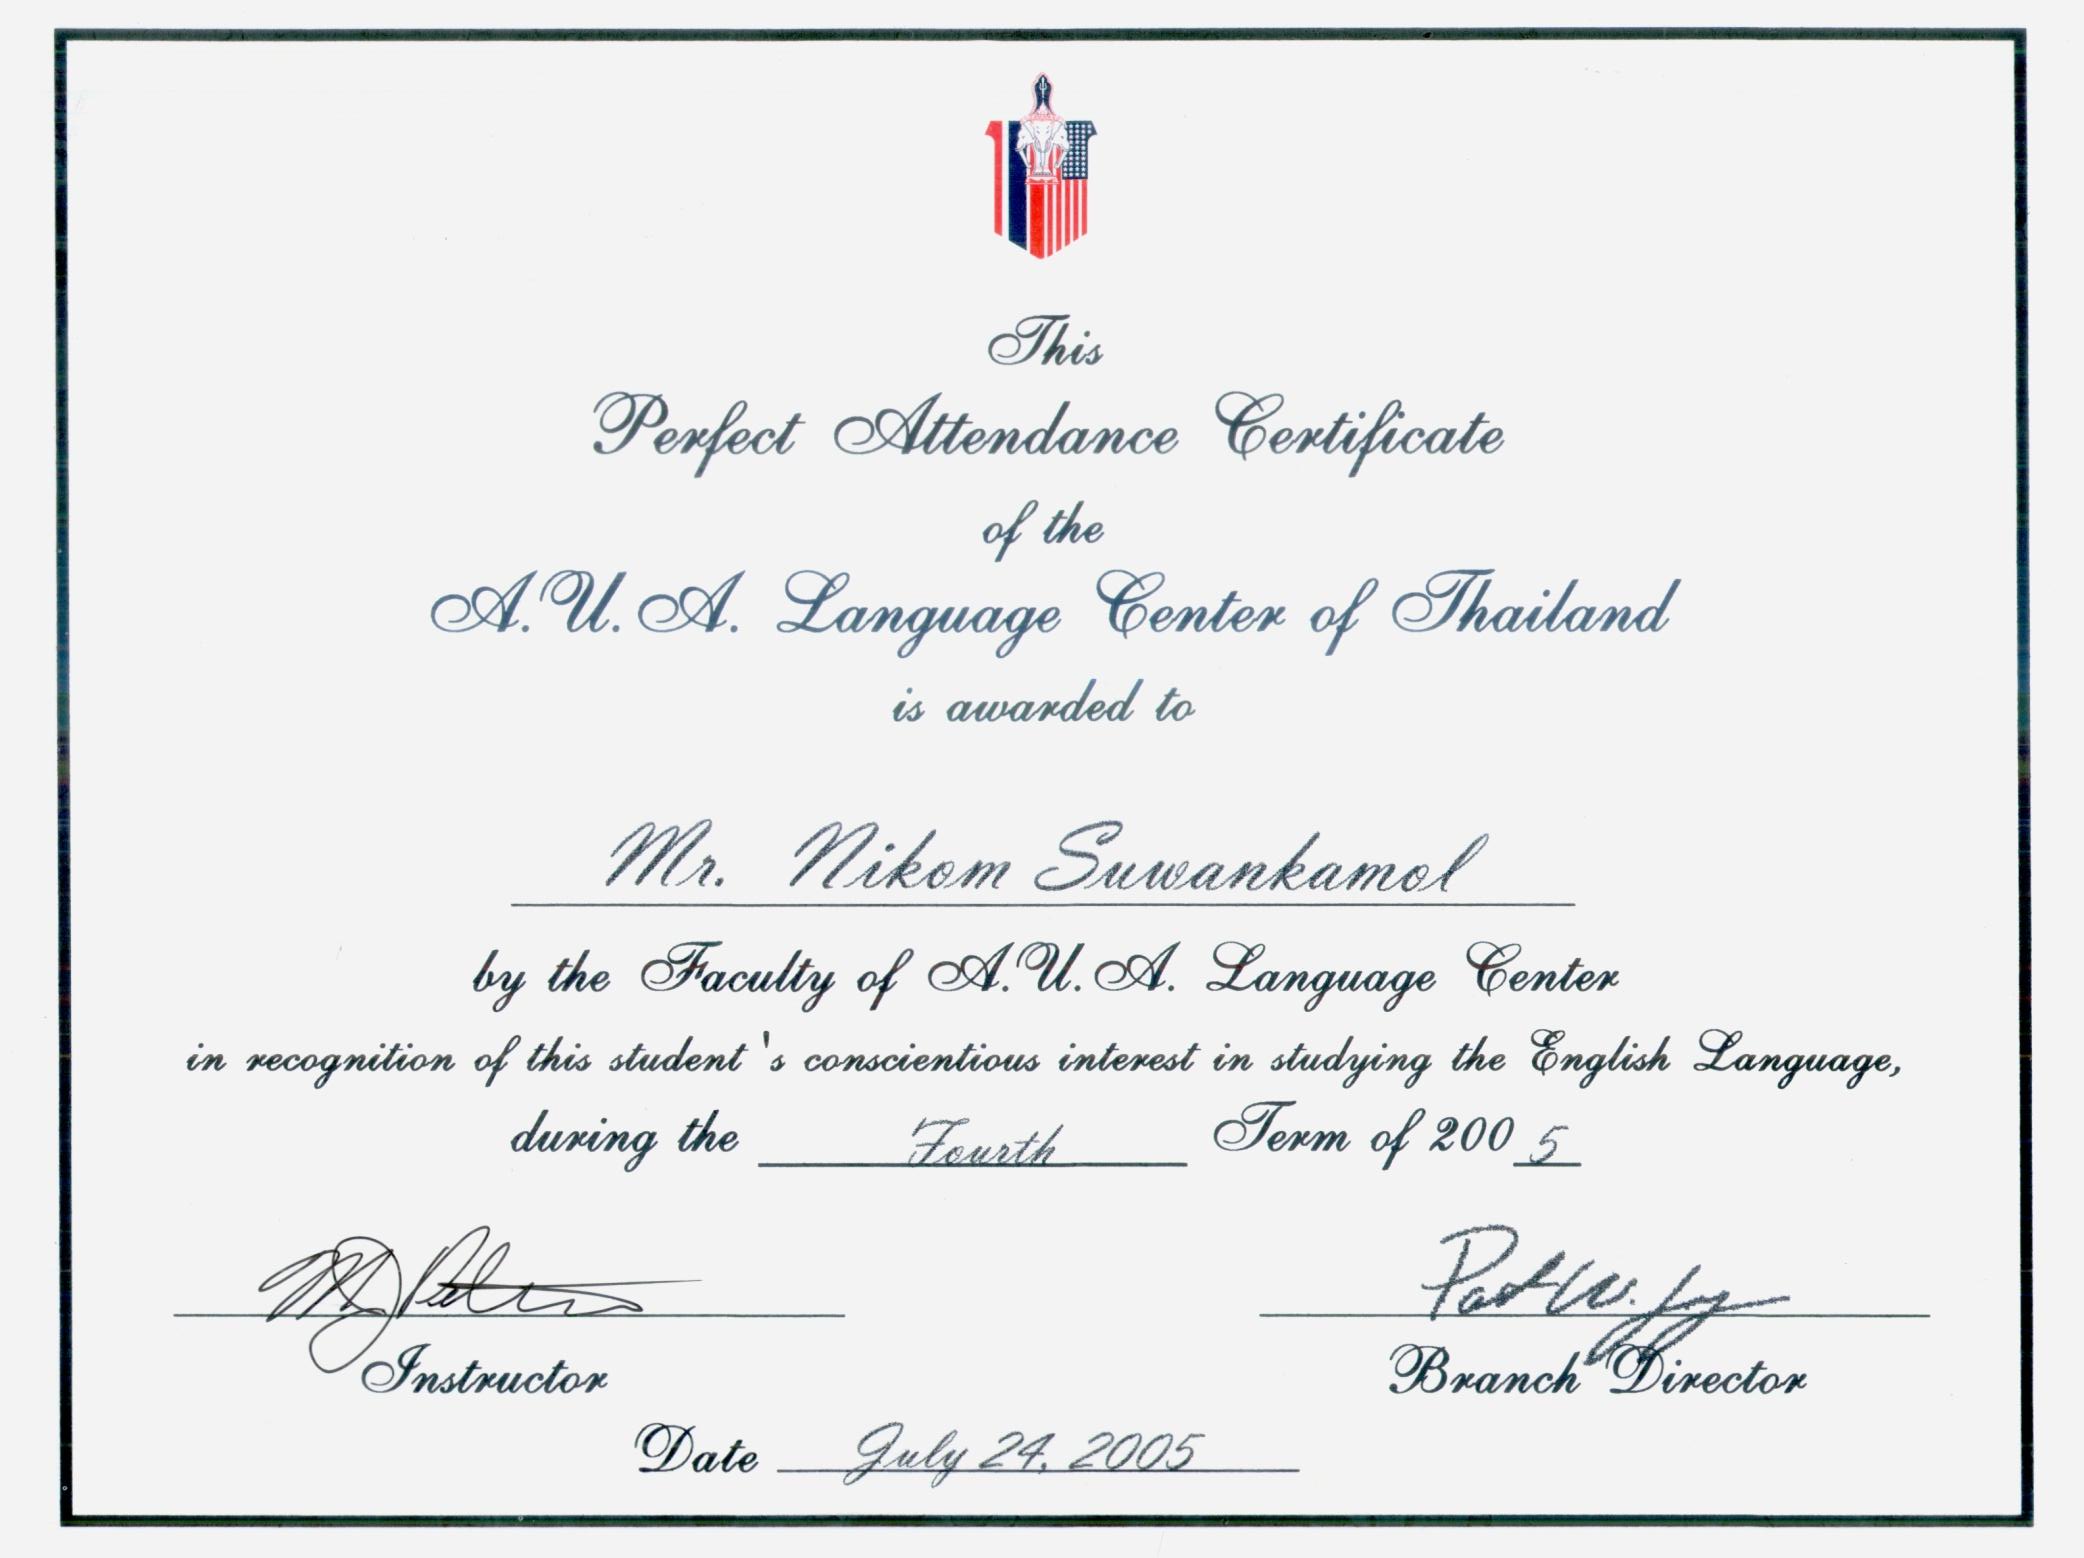 This
Perfect Attendance Certificate
of the
A.U.A. Language Center of Thailand
is awarded to
Mr. Nikom Suwankamol
by the Faculty of A.U.A. Language Center
in recognition of this student's conscientious interest in studying the English Language,
during the Fourth Term of 2005
Pat W.
Instructor Branch Director
Date July 24, 2005